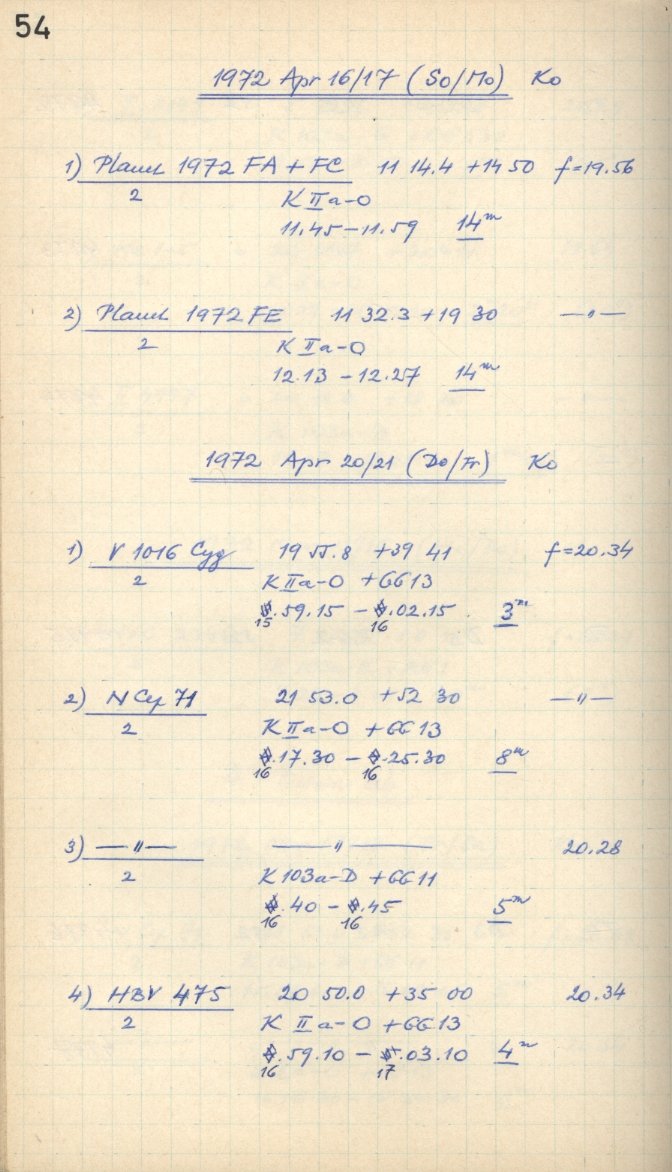 54
1972 Apr 16/17 (So/Mo) Ko
1) Planet 1972 FA + FC 11 14.4 +14 50 f=19.56
2 K IIa-O
11.45 – 11.59 14m
2) Planet 1972 FE 11 32.3 +19 30 —〃—
2 K IIa-O
12.13 – 12.27 14m
1972 Apr 20/21 (Do/Fr) Ko
1) V 1016 Cyg 19 55.8 +39 41 f=20.34
2 K IIa-O + GG13
.59.15 – .02.15 3m
15 16
2) N Cep 71 21 53.0 +52 30 —〃—
2 K IIa-O + GG13
.17.30 – .25.30 8m
16 16
3) —〃— —〃— 20.28
2 K 103a-D + GG11
.40 – .45 5m
16 16
4) HBV 475 20 50.0 +35 00 20.34
2 K IIa-O + GG13
.59.10 – .03.10 4m
16 17